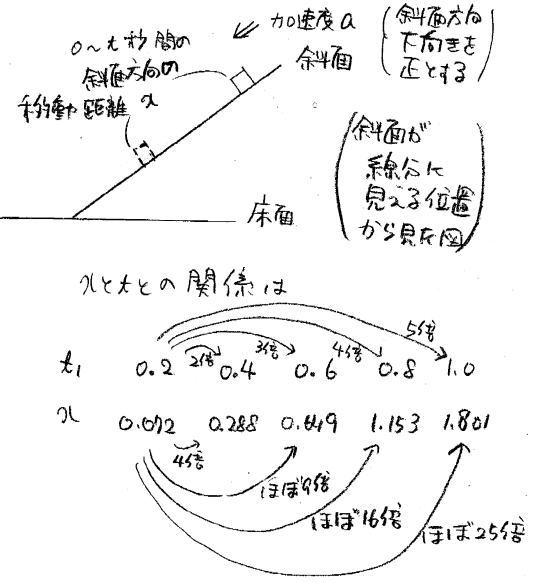 0～t秒間の
斜面方向の
移動距離 x
加速度a
斜面
(斜面方向
下向きを
正とする)
(斜面が
線分に
見える位置
から見た図)
床面
xとtとの関係は
5倍
2倍 3倍 4倍
t₁ 0.2 0.4 0.6 0.8 1.0
x 0.072 0.288 0.649 1.153 1.801
4倍
ほぼ9倍
ほぼ16倍
ほぼ25倍